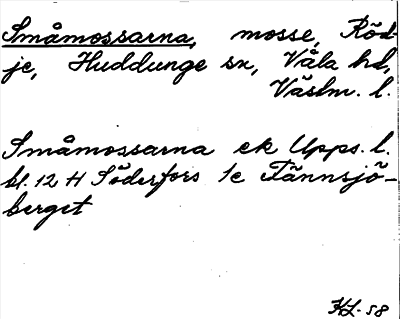 Småmossarna, mosse, Röd-
je, Huddunge sn, Våla hd,
Västm. l.
Småmossarna ek Upps. l.
bl. 12 H Söderfors 1c Tännsjö-
berget
KL-58